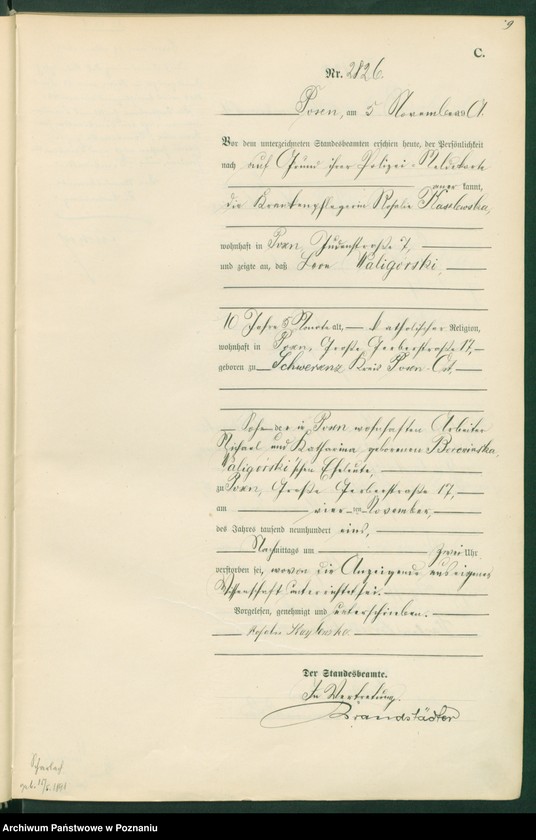 9
C.
Nr. 2826.
Posen, am 5 November 190 1.
Vor dem unterzeichneten Standesbeamten erschien heute, der Persönlichkeit
nach auf Grund ihrer Polizei-Meldekarte
aner kannt,
die Krankenpflegerin Rosalie
wohnhaft in Posen, Judenstraße 7,
und zeigte an, daß Leon Waligorski,
10 Jahre 5 Monate alt, katholischer Religion,
wohnhaft in Posen, Große Gerberstraße 17,
geboren zu Schwersenz Kreis Posen-Ost,
Sohn der in Posen wohnhaften Arbeiter
Michael und Katharina geborenen
Waligorski'schen Eheleute,
zu Posen, Große Gerberstraße 17,
am vierten November,
des Jahres tausend neunhundert eins,
Nachmittags um zwei Uhr
verstorben sei, wovon die Anzeigende aus eigener
Wissenschaft unterrichtet sei.
Vorgelesen, genehmigt und unterschrieben.
Der Standesbeamte.
In Vertretung.
Brandstädter
Archiwum Państwowe w Poznaniu